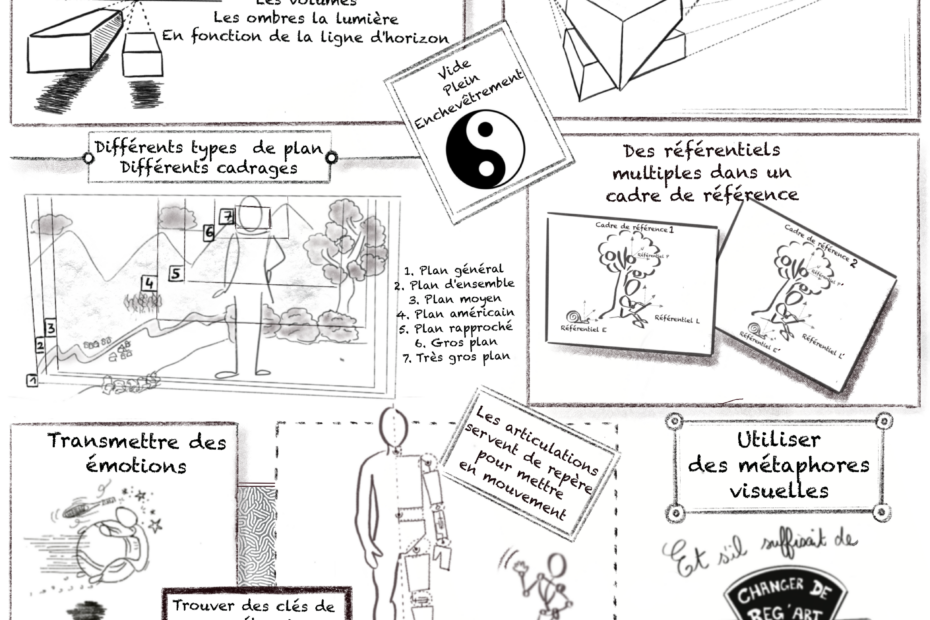 Les volumes
Les ombres la lumière
En fonction de la ligne d'horizon
Vide
Plein
Enchevêtrement
Différents types de plan
Différents cadrages
7
6
5
4
3
2
1
1. Plan général
2. Plan d'ensemble
3. Plan moyen
4. Plan américain
5. Plan rapproché
6. Gros plan
7. Très gros plan
Des référentiels
multiples dans un
cadre de référence
Cadre de référence 1
Référentiel E
Référentiel L
Cadre de référence 2
Référentiel E'
Référentiel L'
Transmettre des
émotions
Les articulations
servent de repère
pour mettre
en mouvement
Utiliser
des métaphores
visuelles
Et s'il suffisait de
CHANGER DE
REG'ART
Trouver des clés de